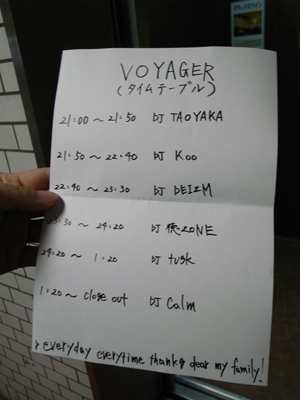 VOYAGER
(タイムテーブル)
21:00 ~ 21:50 DJ TAOYAKA
21:50 ~ 22:40 DJ Koo
22:40 ~ 23:30 DJ DEIZM
23:30 ~ 24:20 DJ 俺ZONE
24:20 ~ 1:20 DJ tusk
1:20 ~ close out DJ Calm
everyday everytime thanks dear my family!